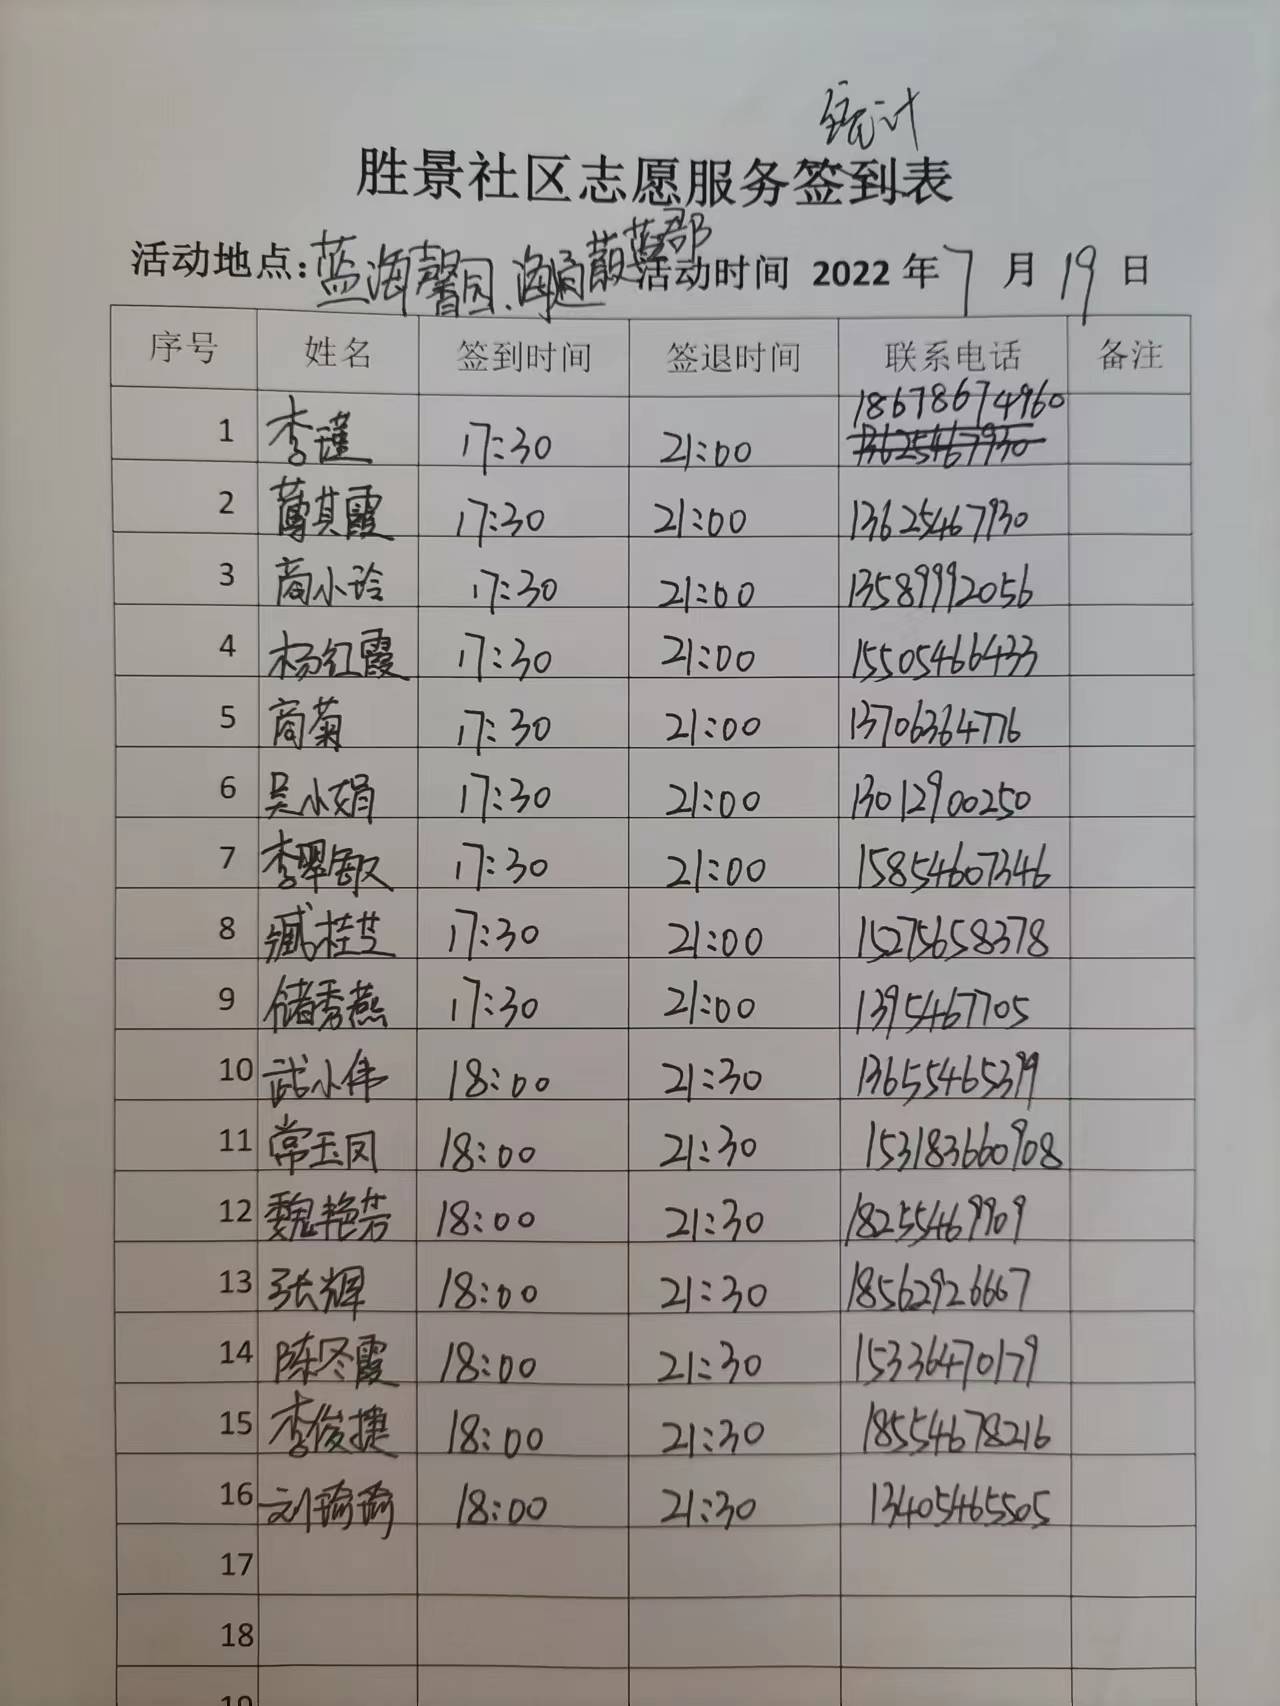 统计
胜景社区志愿服务签到表
活动地点:蓝海馨园、海通 活动时间 2022年7月19日
序号 姓名 签到时间 签退时间 联系电话 备注
18678674960
1 李瑾 17:30 21:00 13625467930
2 薄其霞 17:30 21:00 13625467930
3 商小玲 17:30 21:00 13589992056
4 杨红霞 17:30 21:00 15505466433
5 商菊 17:30 21:00 13706364776
6 吴小娟 17:30 21:00 13012900250
7 李翠敏 17:30 21:00 15854607346
8 臧桂芝 17:30 21:00 15275658378
9 储秀燕 17:30 21:00 1395467705
10 武小伟 18:00 21:30 13655465379
11 常玉凤 18:00 21:30 153183660908
12 魏艳芳 18:00 21:30 18255469909
13 张辉 18:00 21:30 18562926667
14 陈冬霞 18:00 21:30 15336470179
15 李俊捷 18:00 21:30 18554678216
16 刘瑜瑜 18:00 21:30 13405465505
17
18
19